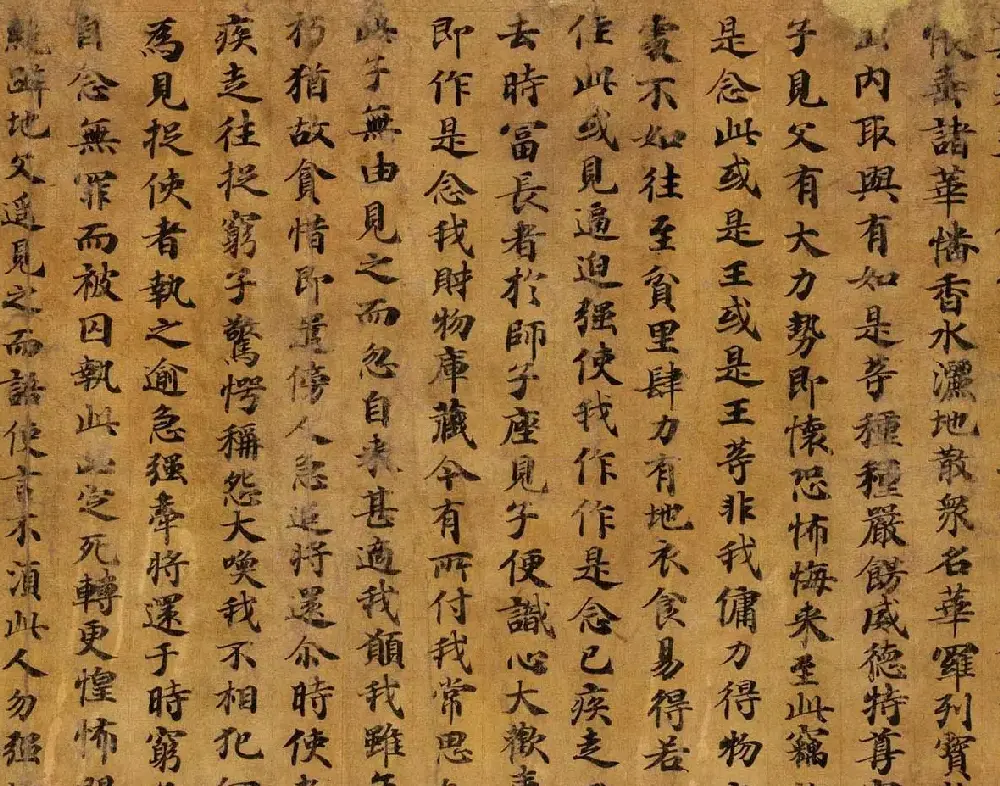 帳垂諸華幡香水灑地散眾名華羅列寶
出内取與有如是等種種嚴飾威德特尊
子見父有大力勢即懷恐怖悔来至此竊
是念此或是王或是王等非我傭力得物
處不如往至貧里肆力有地衣食易得若
住此或見逼迫强使我作作是念已疾走
去時冨長者於師子座見子便識心大歡喜
即作是念我財物庫藏今有所付我常思
此子無由見之而忽自来甚適我願我雖
朽猶故貪惜即遣傍人急追將還尒時使
疾走往捉窮子驚愕稱怨大喚我不相犯
為見捉使者執之逾急强牽將還于時窮
自念無罪而被囚執此必定死轉更惶怖
絕躃地父遥見之而語使言不湏此人勿强